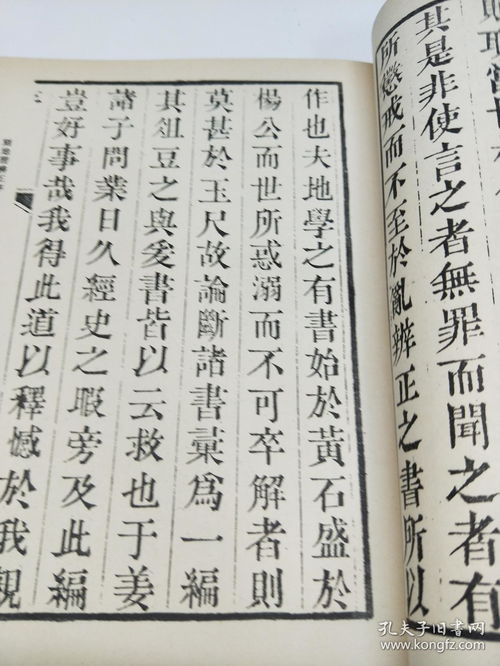 其是非使言之者無罪而聞之者有
所懲戒而不至於亂辨正之書所以
作也夫地學之有書始於黃石盛於
楊公而世所惑溺而不可卒解者則
莫甚於玉尺故論斷諸書彙爲一編
其俎豆之與爰書皆以云救也于姜
諸子問業日久經史之暇旁及此編
豈好事哉我得此道以釋憾於我親
孔夫子旧书网
www.kongfz.com